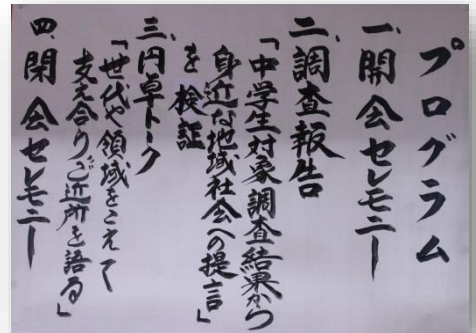 プログラム
一、開会セレモニー
二、調査報告
「中学生対象調査結果から
身近な地域社会への提言」
を検証
三、円卓トーク
「世代や領域をこえて
支え合うご近所を語る」
四、閉会セレモニー